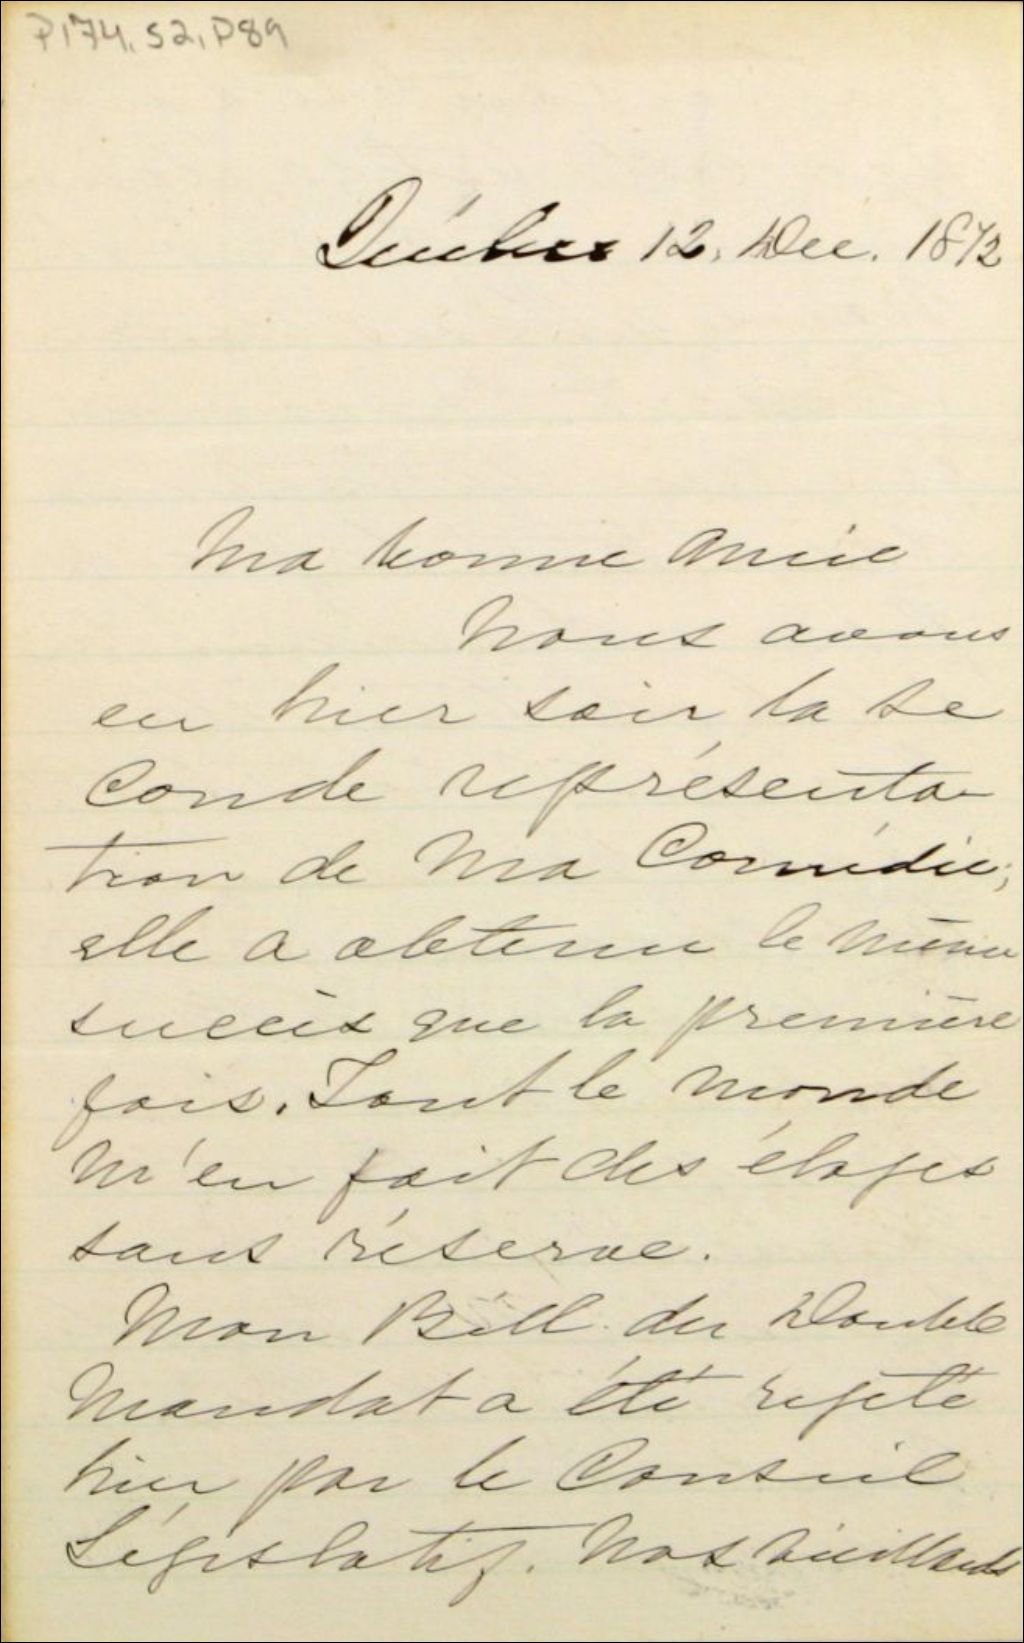 P174, S2, P89
Québec 12. Dec. 1872
Ma bonne Amie
Nous avons
eu hier soir la se
conde représenta-
tion de Ma Comédie;
elle a obtenu le même
succès que la première
fois. Tout le monde
m'en fait des éloges
sans réserve.
Mon Bill du Double
Mandat a été rejeté
hier par le Conseil
Législatif. Nos vieillards